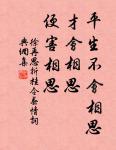 平生不會相思
才會相思
便害相思
徐再思折桂令春情詞
典網集